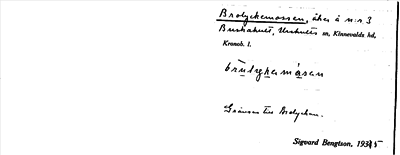 Brolyckemossen, åker å n:r 3
Buskahult, Urshults sn, Kinnevalds hd,
Kronob. l.
brulykamåsan
Gränsar till Brolyckan.
Sigurd Bengtson, 1935